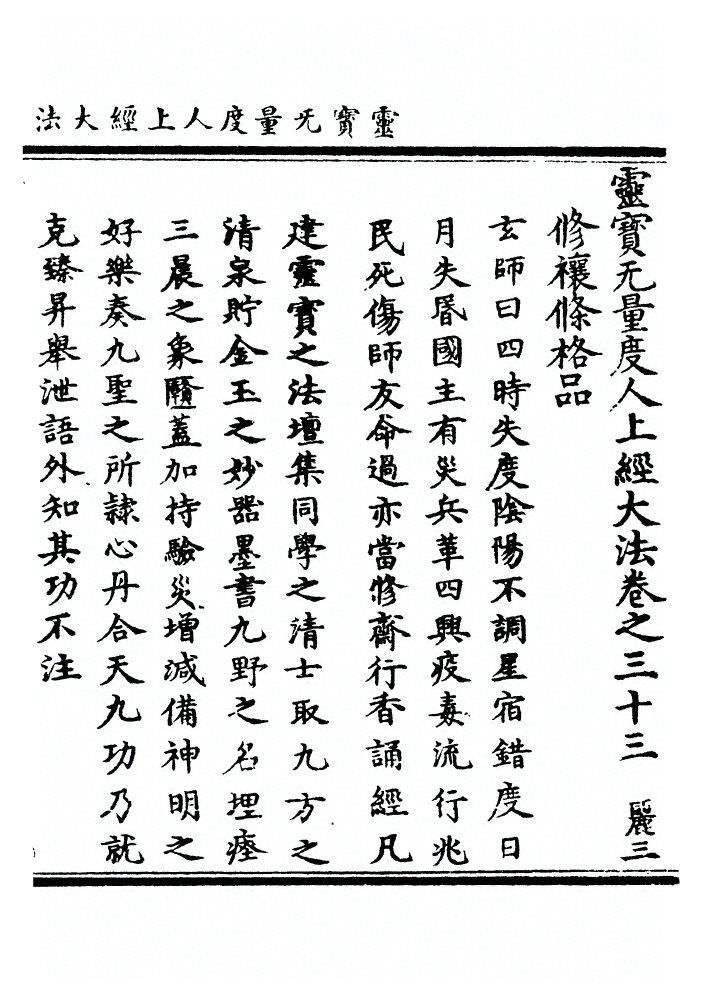 靈寶无量度人上經大法
靈寶无量度人上經大法卷之三十三 麗三
修禳條格品
玄師曰四時失度陰陽不調星宿錯度日
月失昬國主有災兵革四興疫毒流行兆
民死傷師友命過亦當修齋行香誦經凡
建靈寶之法壇集同學之清士取九方之
清泉貯金玉之妙器墨書九野之名埋瘞
三晨之象賾蓋加持驗災增減備神明之
好樂奏九聖之所隷心丹合天九功乃就
克臻昇舉泄語外知其功不注